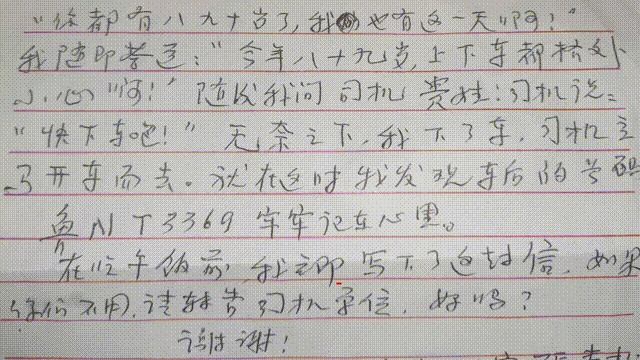 "你都有八九十岁了,我也有这一天啊!"
我随即答道:"今年八十九岁,上下车都格外
小心啊!"随后我问司机贵姓:司机说:
"快下车吧!"无奈之下,我下了车,司机立
马开车而去。就在这时我发现车后的号码
鲁NT3369牢牢记在心里。
在吃午饭前,我立即写下了这封信,如果
你们不用,请转告司机单位,好吗?
谢谢!